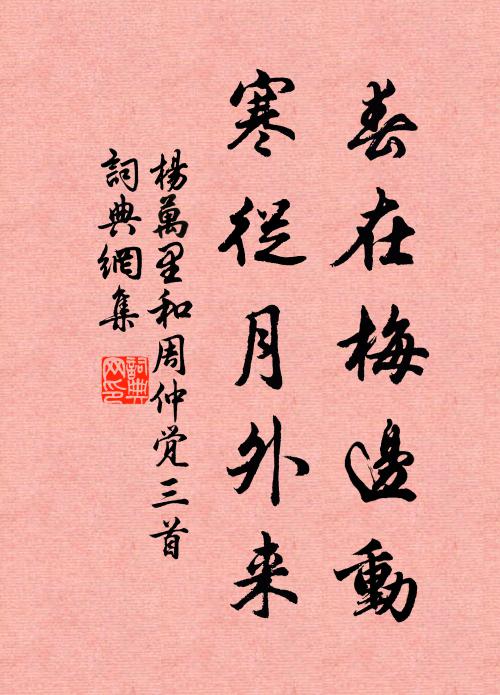 春在梅邊動
寒從月外来
楊萬里和周仲觉三首
詞典網集
詞典
网印